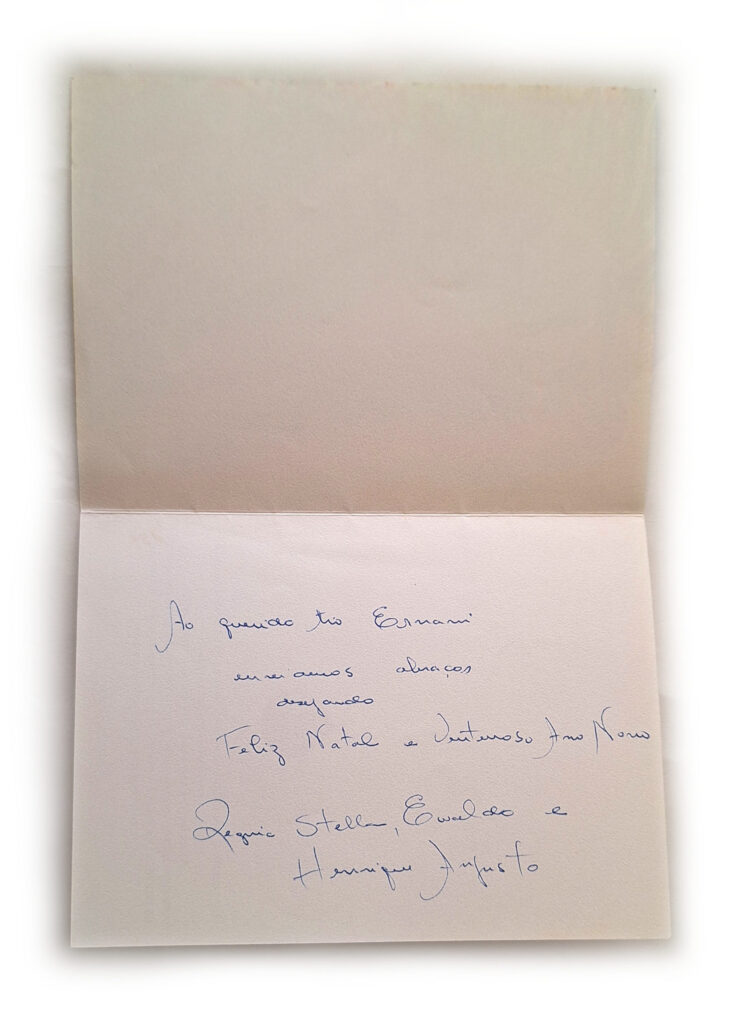 Ao querido tio Ernani
enviamos abraços
desejando
Feliz Natal e Venturoso Ano Novo
Stella, Ewaldo e
Henrique Augusto